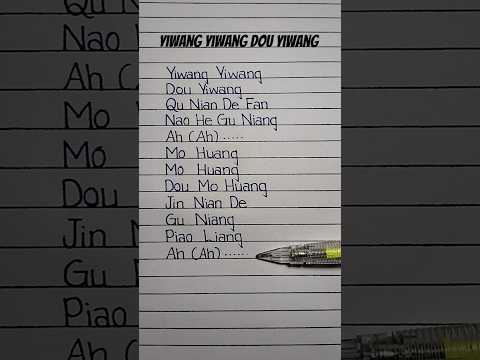 YIWANG YIWANG DOU YIWANG
Yiwang Yiwang
Dou Yiwang
Qu Nian De Fan
Nao He Gu Niang
Ah (Ah) .....
Mo Huang
Mo Huang
Dou Mo Huang
Jin Nian De
Gu Niang
Piao Liang
Ah (Ah) .....